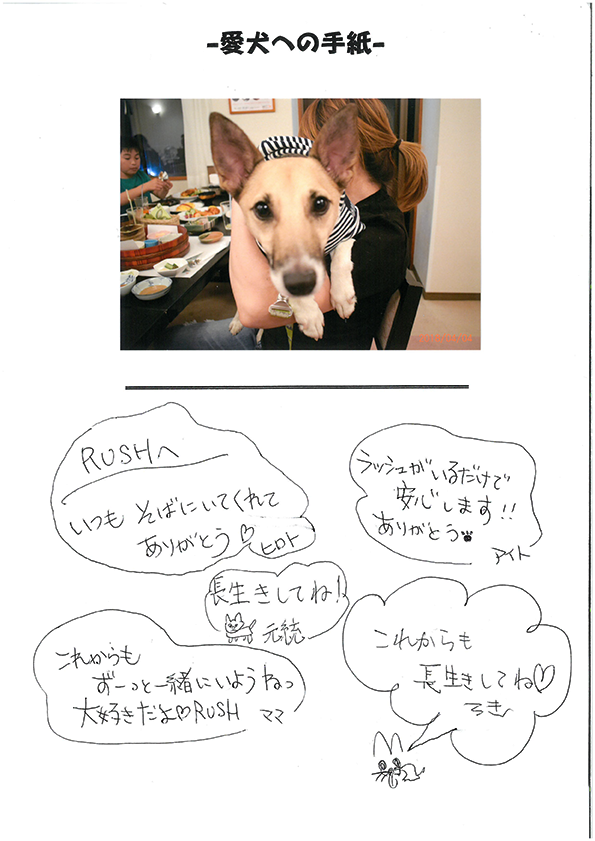 -愛犬への手紙-
RUSHへ
いつも そばにいてくれて
ありがとう♡
ヒロト
ラッシュがいるだけで
安心します!!
ありがとう
アイト
長生きしてね!
元続
これからも
ずーっと一緒にいようねっ
大好きだよ♡RUSH ママ
これからも
長生きしてね♡